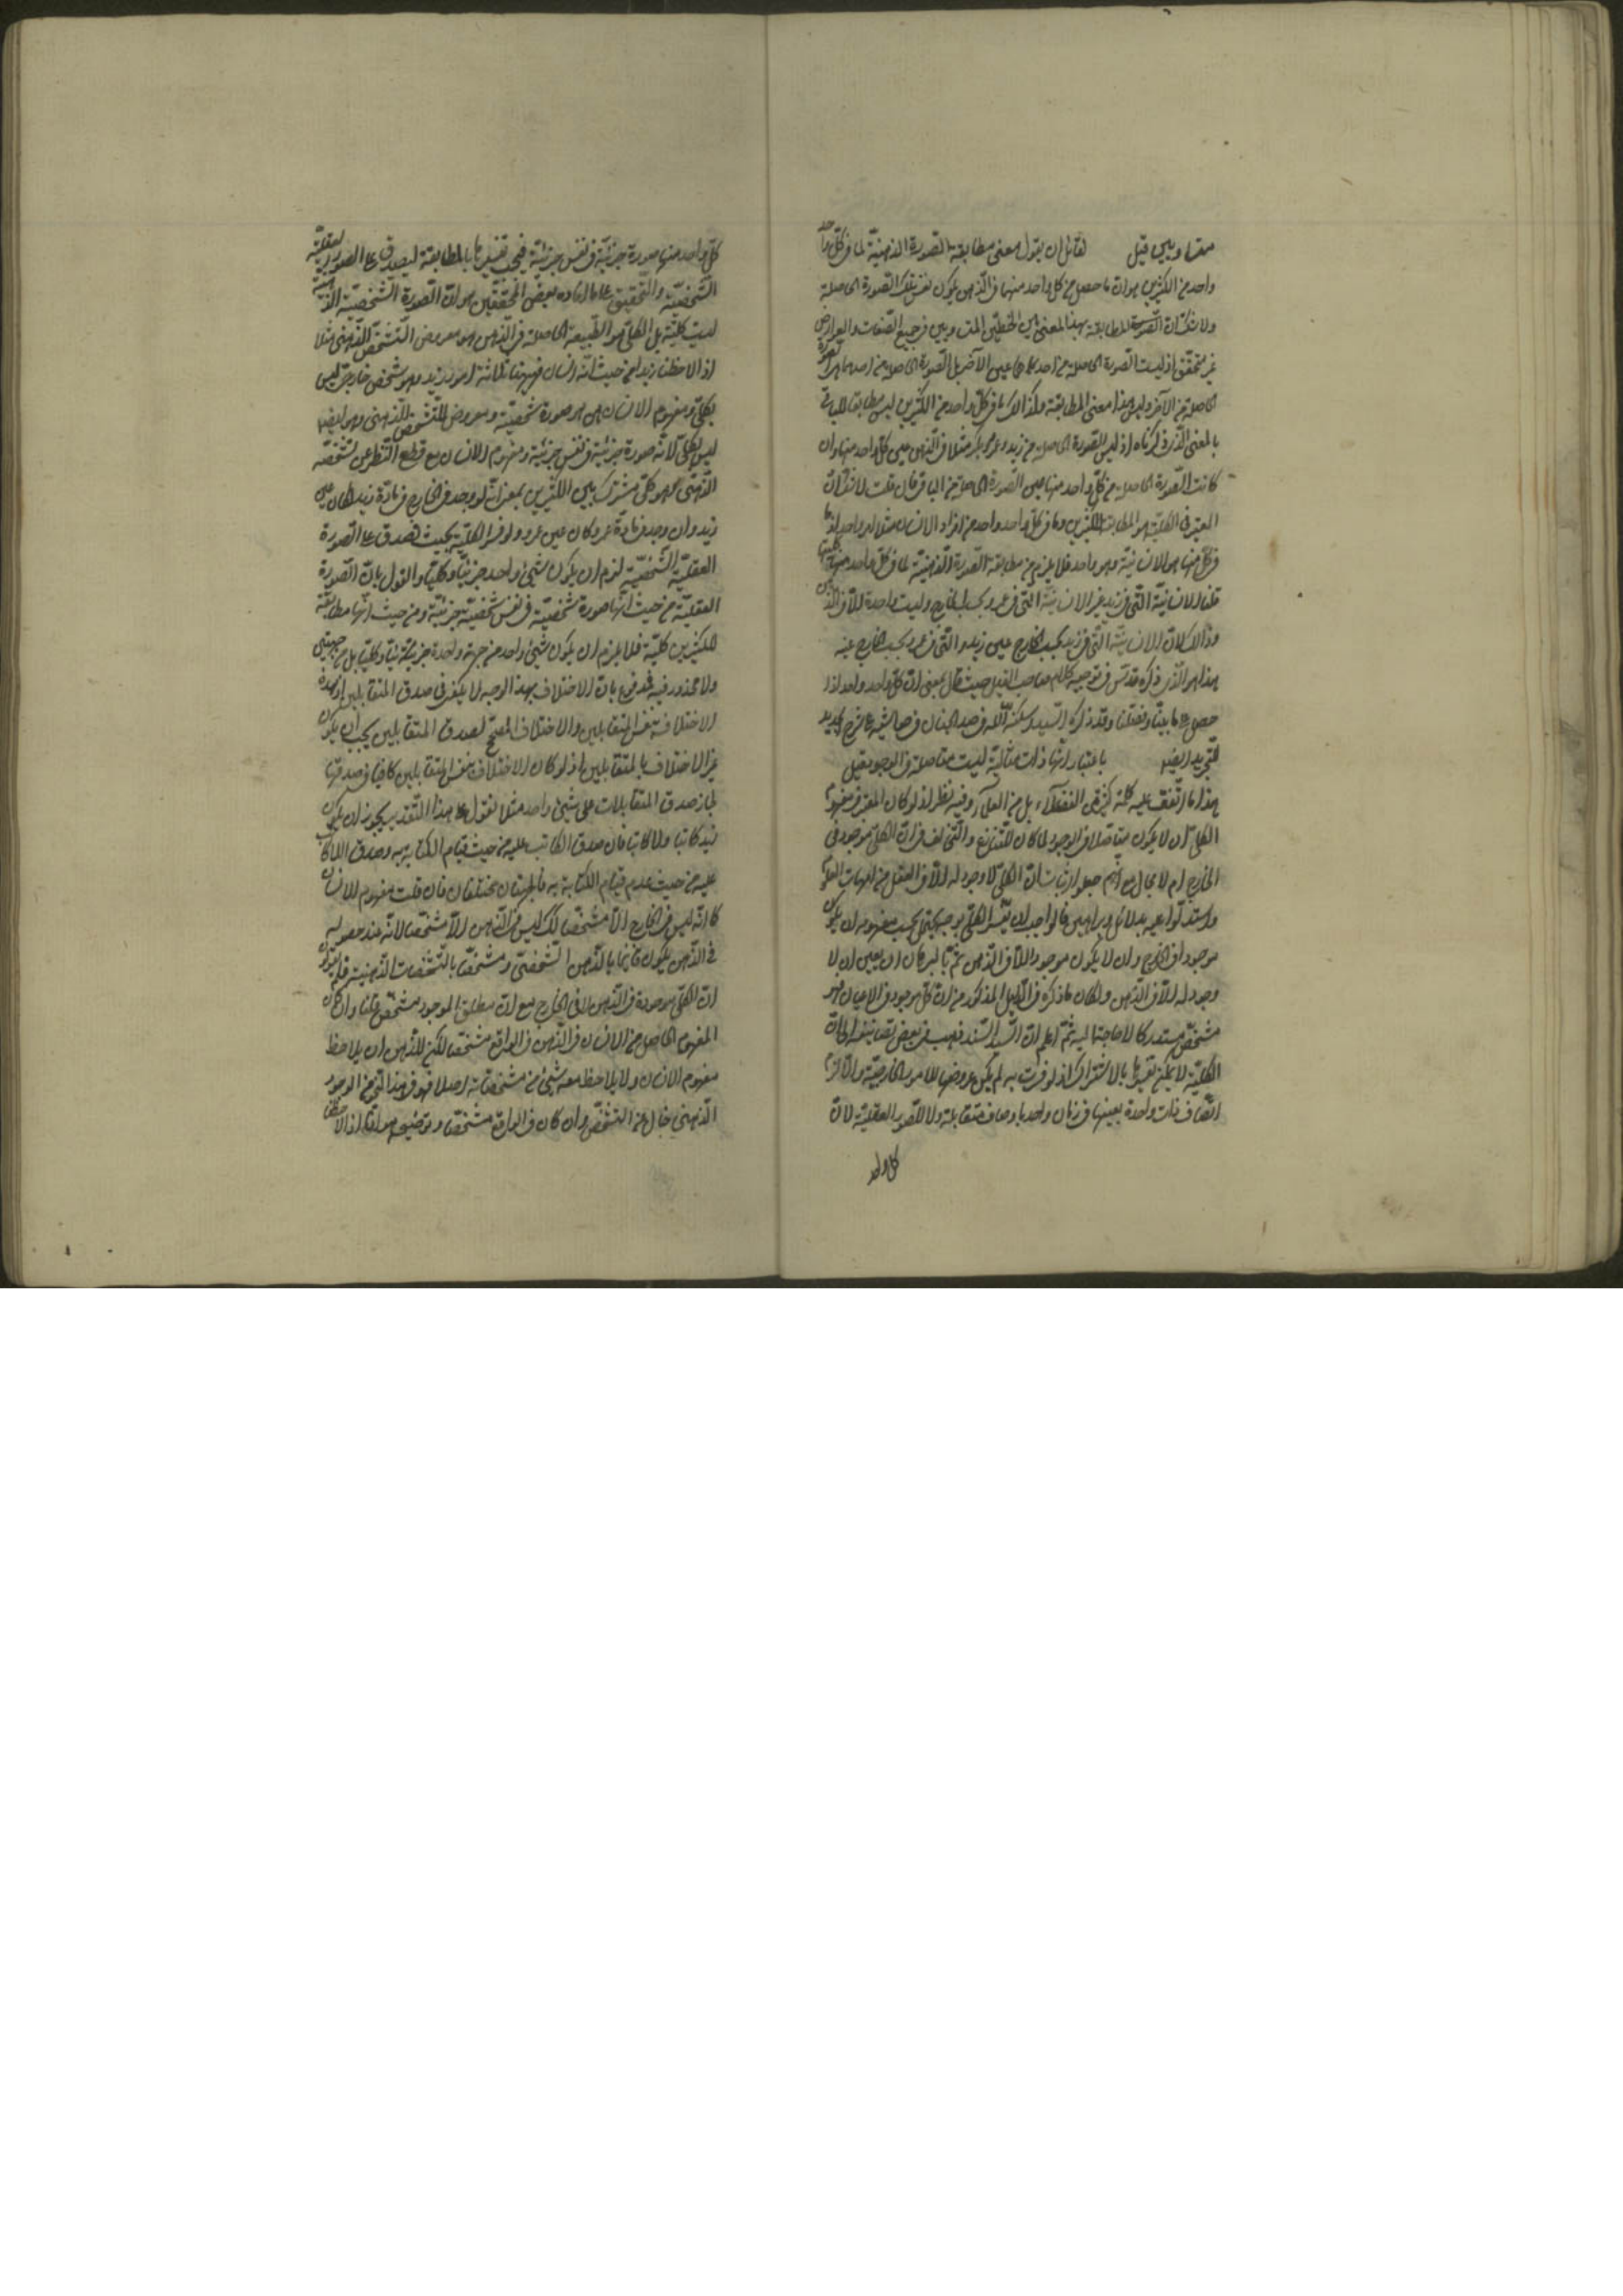 متساويين قيل لقائل ان يقول معنى مطابقة الصورة الذهنية لما في كل واحد
واحد من الكثيرين هو ان ما حصل من كل واحد منها في الذهن يكون نفس تلك الصورة الحاصلة
ولا شك ان المطابقة بهذا المعنى بين الخطين المتساويين في جميع الصفات والعوارض
غير متحقق اذ ليست الصورة الحاصلة من احدهما عين الآخر بل الصورة الحاصلة من احدهما هو الصورة
الحاصلة من الآخر وليس هذا معنى المطابقة وكذا الكلام في كل واحد من الكثيرين ليس مطابقا للباقي
بالمعنى الذي ذكرناه اذ ليس الصورة الحاصلة من زيد وعمرو وبكر مثلا في الذهن عين كل واحد منها وان
كانت الصورة الحاصلة من كل واحد منها عين الصورة الحاصلة من الباقي فان قلت لا شك ان
المعتبر في الكلية هو المطابق للكثيرين وما في كل واحد واحد من افراد الانسان مثلا امر واحد اذ ما
في كل منها هو الانسانية وهو واحد فلا يلزم من مطابقة الصورة الذهنية لما في كل واحد منها كليتها
قلنا الانسانية التي في زيد غير الانسانية التي في عمرو بحسب الخارج وليست واحدة الا في الذهن
وذلك لان الانسانية التي في زيد بحسب الخارج عين زيد والتي في عمرو بحسب الخارج عينه
هذا هو الذي ذكره قدس في توجيه كلام صاحب القيل حيث قال بمعنى ان كل واحد واحد اذا
حصل ما بيننا ونقلنا وقد ذكره السيد اسكنه الله في صدر الجنان في حاشيته على شرح الجديد
للتجريد ايضا باعتبار انها ذات مثالية ليست متاصلة في الوجود قيل
هذا ما اتفق عليه كلمة كثير من الفضلاء بل من العلماء وفيه نظر اذ لو كان المعتبر في مفهوم
الكلي ان لا يكون متاصلا في الوجود لما كان للتنازع والتخالف في ان الكلي موجود في
الخارج ام لا مجال مع انهم جعلوا اثبات ان الكلي لا وجود له الا في العقل من امهات العلوم
واستدلوا عليه بدلائل وبراهين فالواجب ان يفسر الكلي بوجه يحتمل بحسب مفهومه ان يكون
موجودا في الخارج وان لا يكون موجودا الا في الذهن ثم بالبرهان ان يعين ان لا
وجود له الا في الذهن ولكان ما ذكره في الدليل المذكور من ان كل موجود في الاعيان فهو
مشخص مستدركا لا حاجة اليه ثم اعلم ان السيد السند ذهب في بعض تصانيفه الى ان
الكلية لا يمكن تفسيرها بالاشتراك اذ لو فسرت به لم يكن عروضها للامور الخارجية والا لزم
اتصاف ذات واحدة بعينها في زمان واحد باوصاف متقابلة ولا للصور العقلية لان
كل واحد
كل واحد منها صورة جزئية في نفس جزئية فيجب تفسيرها بالمطابقة ليصدق على الصور العقلية
الشخصية والتحقيق على ما افاده بعض المحققين هو ان الصورة الشخصية الذهنية
ليست كلية بل الكلي هو الطبيعة الحاصلة في الذهن هو معروض التشخص الذهني مثلا
اذا لاحظنا زيدا من حيث انه انسان فههنا ثلاثة امور زيد وهو شخص خارجي ليس
بكلي ومفهوم الانسان من هو صورة شخصية ومعروض للتشخص الذهني وهو ايضا
ليس بكلي لانه صورة جزئية في نفس جزئية ومفهوم الانسان مع قطع النظر عن تشخصه
الذهني هو كلي مشترك بين الكثيرين بمعنى انه لو وجد في الخارج في مادة زيد لكان عين
زيد وان وجد في مادة عمرو كان عين عمرو ولو فسر الكلية بحيث تصدق على الصورة
العقلية الشخصية لزم ان يكون شيئ واحد جزئيا وكليا والقول بان الصورة
العقلية من حيث انها صورة شخصية في نفس شخصية جزئية ومن حيث انها مطابقة
للكثيرين كلية فلا يلزم ان يكون شيئ واحد من جهة واحدة جزئيا وكليا بل من جهتين
ولا محذور فيه مدفوع بان الاختلاف بهذا الوجه لا يكفي في صدق المتقابلين اذ هذا
الاختلاف بنفس المتقابلين والاختلاف المصحح لصدق المتقابلين يجب ان يكون
غير الاختلاف بالمتقابلين اذ لو كان الاختلاف بنفس المتقابلين كافيا في صدقها
لجاز صدق المتقابلات على شيئ واحد مثلا نقول على هذا التقدير يجوز ان يكون
زيد كاتبا ولا كاتبا فان صدق الكاتب عليه من حيث قيام الكتابة به وصدق اللاكاتب
عليه من حيث عدم قيام الكتابة به فالجهتان مختلفتان فان قلت مفهوم الانسان
كما انه ليس في الخارج الا مشخصا كذلك ليس في الذهن الا مشخصا لانه عند حصوله
في الذهن يكون قائما بالذهن الشخصي ومشخصا بالتشخصات الذهنية فلم يقولون
ان الكلي موجودة في الذهن لا في الخارج مع ان مطلق الموجود مشخص قلنا وان كان
المفهوم الحاصل من الانسان في الذهن في الواقع مشخصا لكن للذهن ان يلاحظ
مفهوم الانسان ولا يلاحظ معه شيئ من مشخصاته اصلا فهو في هذا النحو من الوجود
الذهني خال عن التشخص وان كان في الواقع مشخصا وتوضيحه هو انا اذا لاحظنا